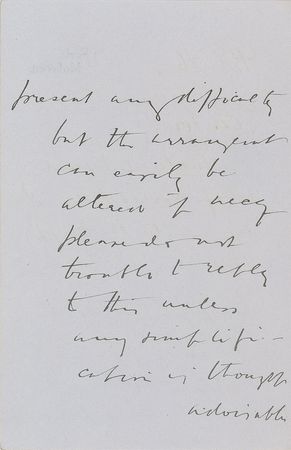 present any difficulty
but the arrangent
can easily be
altered if necy
please do not
trouble to reply
to this unless
any simplifi-
cation is thought
advisable